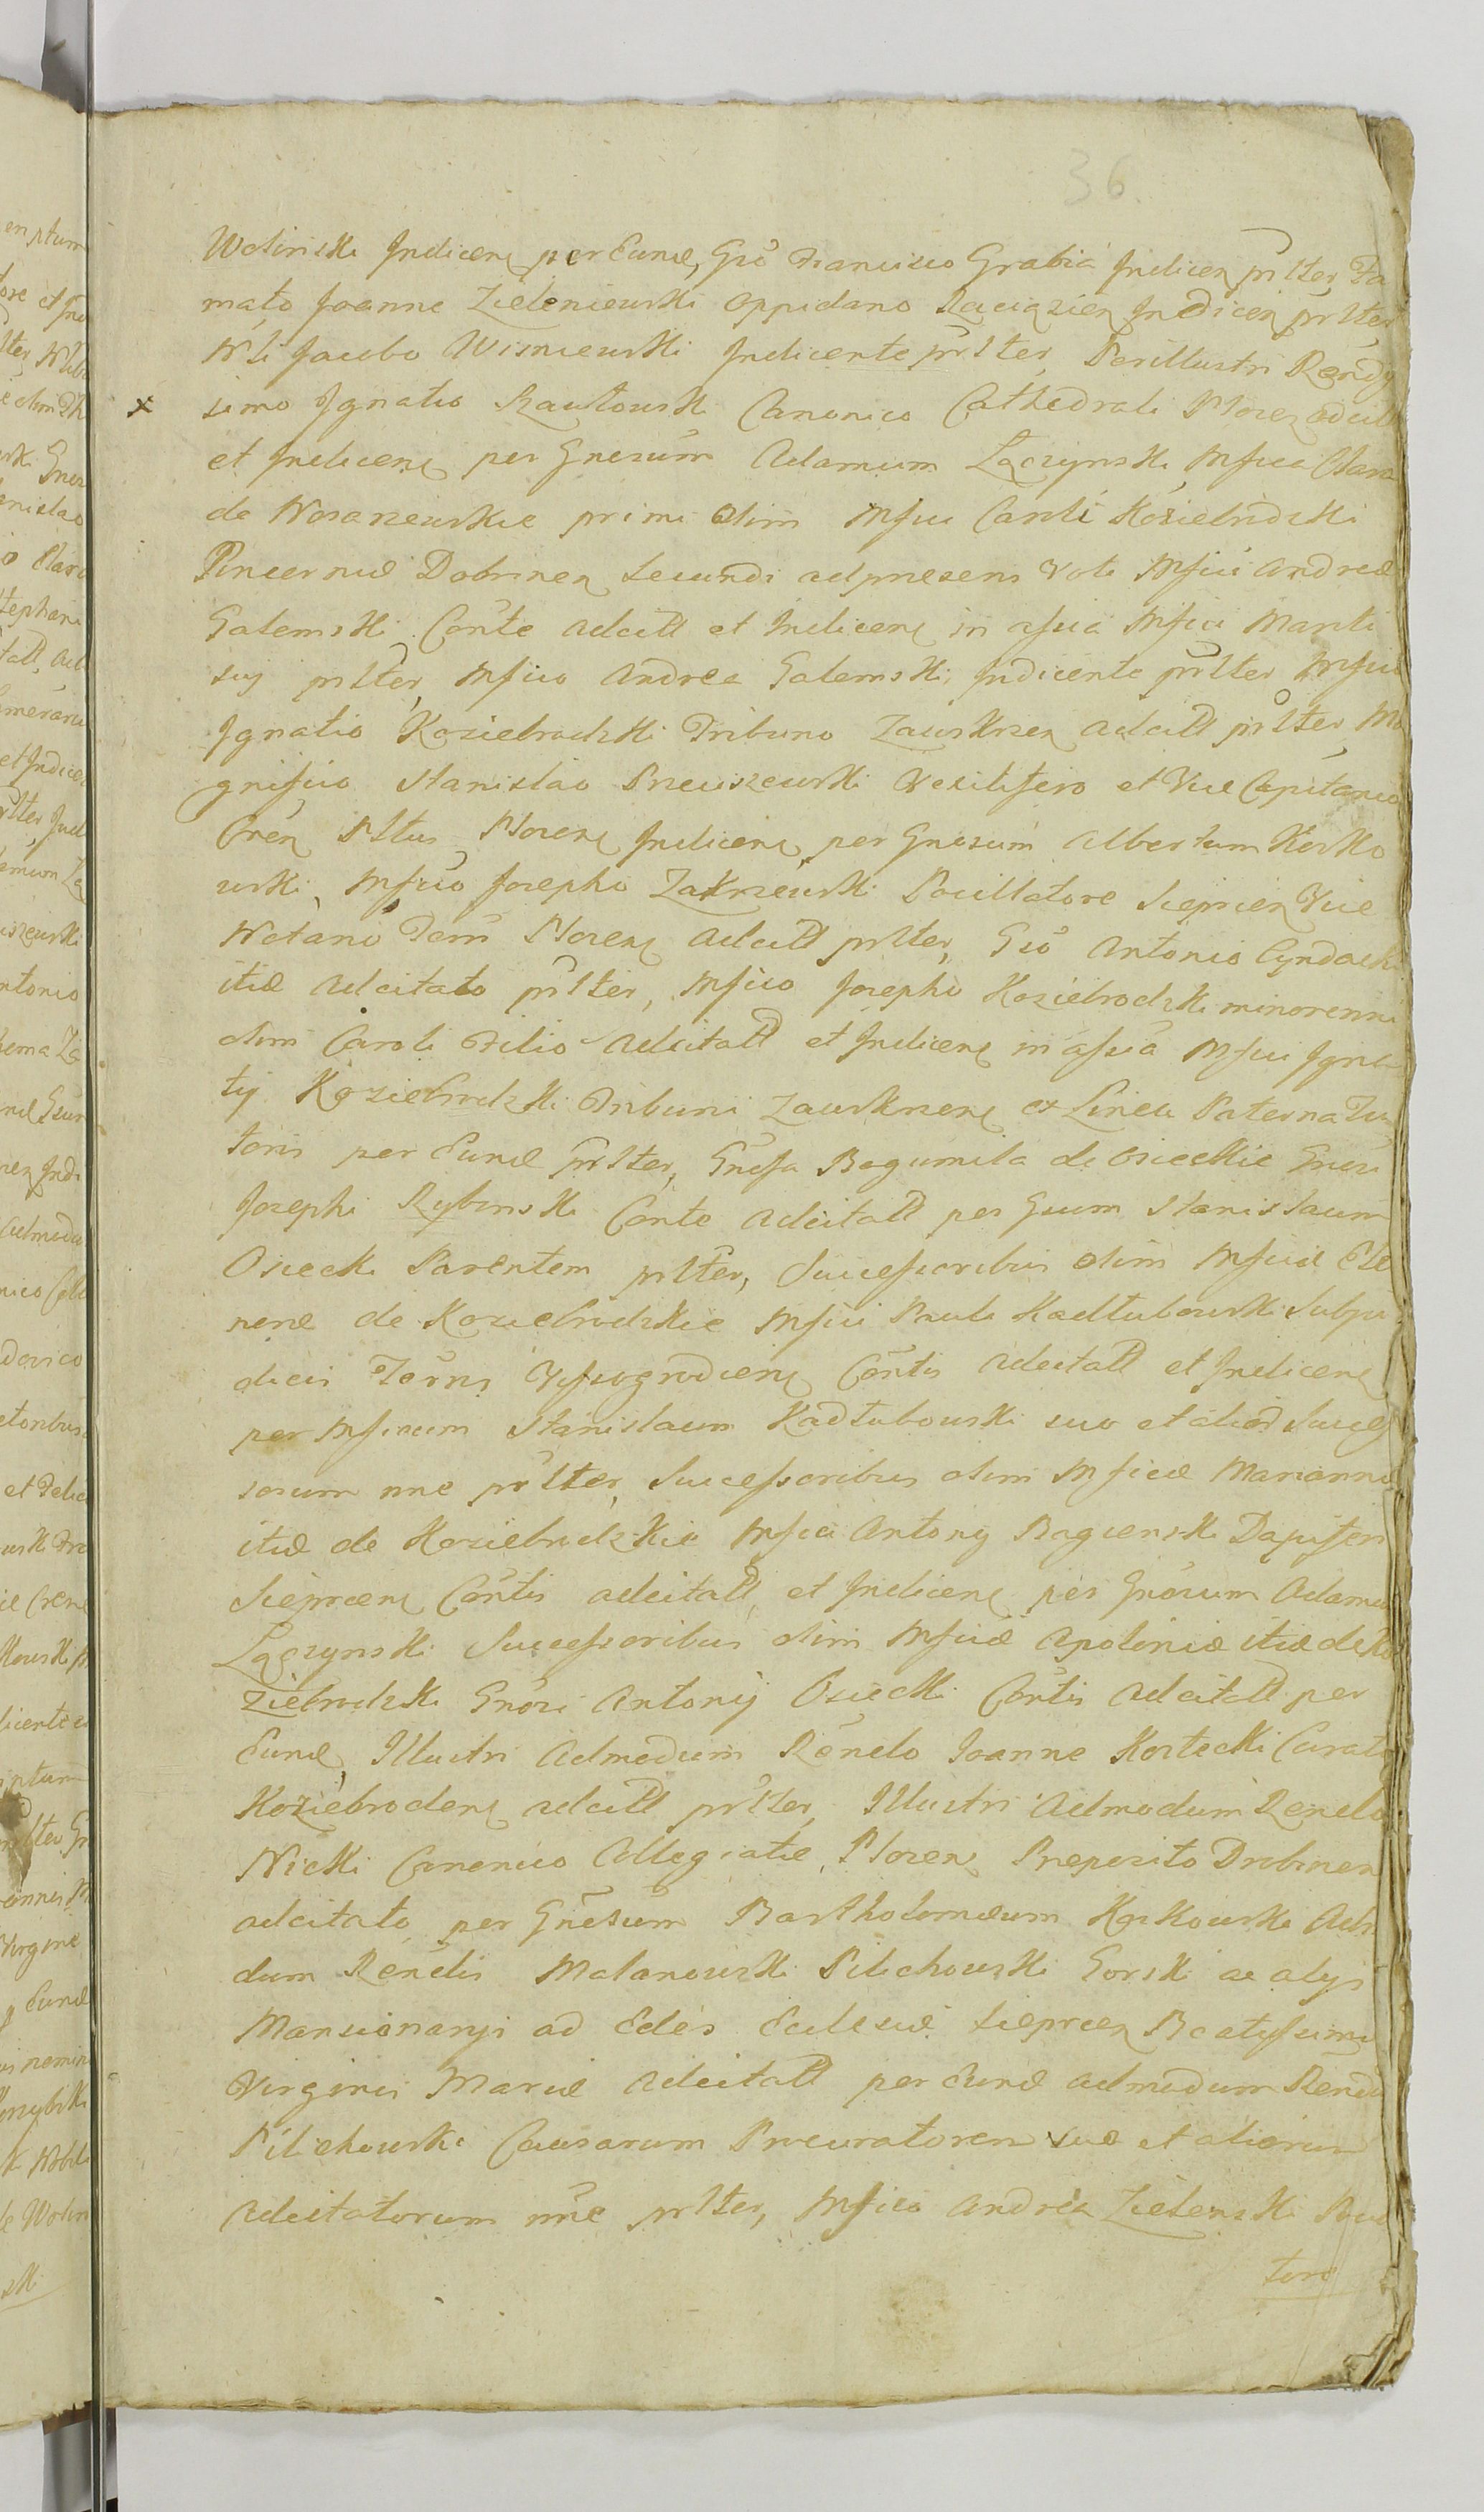 36
Wolinski Indicen per Eund, Gso Francisco Grabia Indicen prlter, Fa
mato Joanne Zieleniewski Oppidano Raciązien Indicen prlter
Nli Jacobo Wisniewski Indicente prlter, Perillustri Rendis
simo Ignatio Rautowski Canonico Cathedrali Plocen adcitt
et Indicen per Gnesum Adamum Łączynski, Mfica Clara
de Nosarzewskie primi olim Mfici Caroli Koziebrodzki
Pincernæ Dobrinen secundi ad præsens Voti Mfici Andreæ
Galemski Conte adcitt et Indicen in assia Mfici Mariti
sui prlter, Mfico Andrea Galemski, Indicente prlter Mfico
Ignatio Koziebrodzki Tribuno Zawskrzen adcitt prlter Ma
gnifico Stanislao Przeciszewski Vexilifero et Vice Capitaneo
Cren Pltus Plocen Indicen per Gnesum Albertum Kosko
wski, Mfico Josepho Zakrzewski Pocillatore Sieprcen Vice
Notario Plocen adcitt prlter, Gso Antonio Cyndacki
itid adcitato prlter, Mfico Josepho Koziebrodzki minorenni
olim Caroli Filio adcitatt et Indicen in assia Mfici Igna
tij Koziebrodzki Tribuni Zawskrzen ex Linea Paterna Tu
toris per Eund prlter, Gnesa Bogumila de Osieckie Gnesi
Josephi Rybinski Conte adcitatt per Gsum Stanislaum
Osiecki Parentem prlter, Successoribus olim Mficæ Ele
nene de Koziebrodzkie Mfici Pauli Kadłubowski Subju
dicis Terris Vissogrodien Contis adcitatt et Indicen
per Mficum Stanislaum Kadłubowski suo et aliod Succes
sorum nne prlter, Successoribus olim Mficæ Mariannæ
itid de Koziebrodzkie Mfici Antony Bagienski Dapiferi
Sieprcen Contis adcitatt et Indicen per Gnosum Adamum
Łączynski Successoribus olim Mficæ Apoloniæ itid de Ko
ziebrodzki Gnosi Antonij Osiecki Contis adcitatt per
Eund, Illustri Admodum Rendo Joanne Kostecki Curato
Koziebroden adcitt prlter, Illustri Admodum Rendo
Nicki Canonico Collegiatæ Plocen Preposito Drobinen
adcitato per Gnesum Bartholomæum Koskowski Admo
dum Rendis Malanowski Pilichowski Gorski ac alys
Mansionarys ad Edes Eclesiæ Sieprcen Beatyssimæ
Virginis Mariæ adcitatt per Eund admodum Rendu
Pilichowski Causarum Procuratorem suo et aliorum
adcitatorum nne prlter, Mfico Andrea Zielenski Pocil
tore